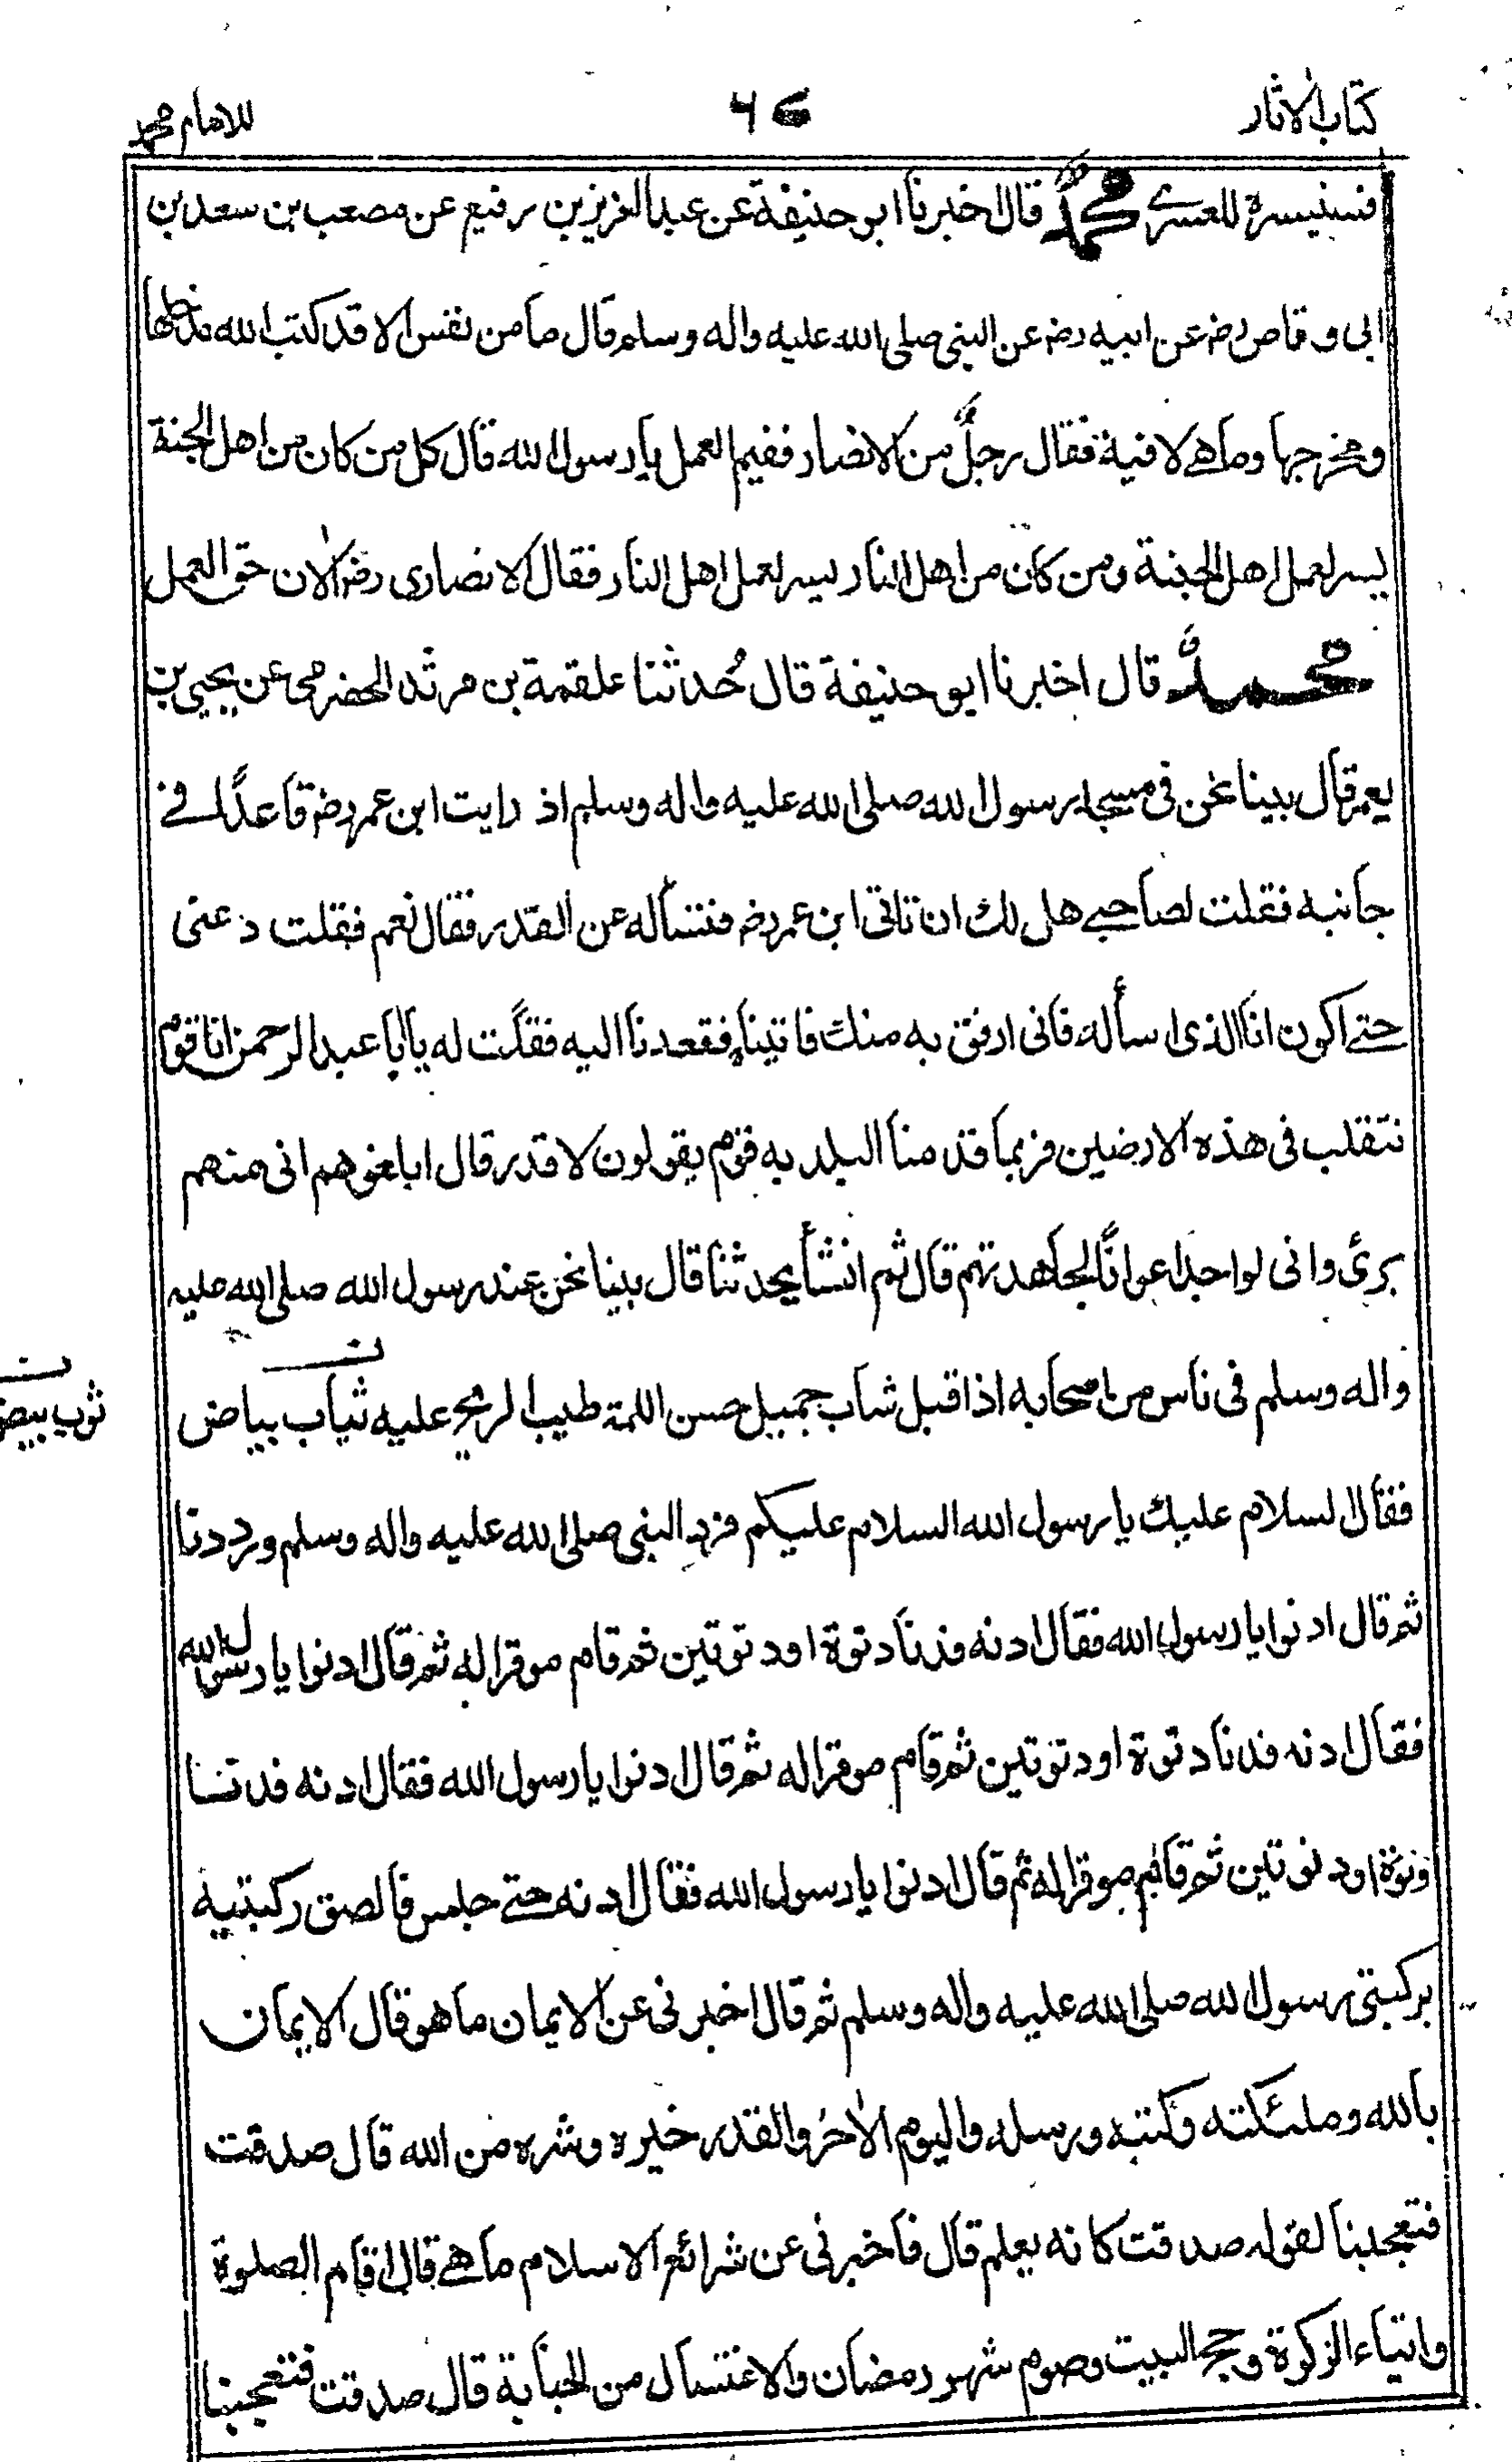 كتاب الآثار
٦٧
للامام محمد
فسنيسره للعسرے محمدٌ قال اخبرنا ابو حنيفة عن عبد العزيز بن رفيع عن مصعب بن سعد بن
ابى وقاص رض عن ابيه رض عن النبى صلى الله عليه واله وسلم قال ما من نفس الا قد كتب الله مدخلها
ومخرجها وما هے لاقية فقال رجلٌ من الانصار ففيم العمل يا رسول الله قال كل من كان من اهل الجنة
يسر لعمل اهل الجنة ومن كان من اهل النار يسر لعمل اهل النار فقال الانصارى رض الآن حق العمل
محمدٌ قال اخبرنا ابو حنيفة قال حُدثنا علقمة بن مرثد الحضرمى عن يحيى بن
يعمر قال بينا نحن فى مسجد رسول الله صلى الله عليه واله وسلم اذ رايت ابن عمر رض قاعدًا فے
جانبه فقلت لصاحبے هل لك ان تاتى ابن عمر رض فنتسأله عن القدر فقال نعم فقلت دعنى
حتے اكون انا الذى اسأله فانى ارفق به منك فاتيناه فقعدنا اليه فقلت له يا ابا عبد الرحمن انا قوم
نتقلب فى هذه الارضين فربما قدمنا البلد به قوم يقولون لا قدر قال ابلغوهم انى منهم
برئ وانى لو اجد اعوانًا لجاهدتهم قال ثم انشأ يحدثنا قال بينا نحن عند رسول الله صلى الله عليه
واله وسلم فى ناس من اصحابه اذ اقبل شاب جميل حسن اللمة طيب الريح عليه ثياب بياض
ثوب بيض
فقال السلام عليك يا رسول الله السلام عليكم فرد النبى صلى الله عليه واله وسلم ورددنا
ثم قال ادنوا يا رسول الله فقال ادنه فدنا دنوة او دنوتين ثم قام موقرا له ثم قال ادنوا يا رسول الله
فقال ادنه فدنا دنوة او دنوتين ثم قام موقرا له ثم قال ادنوا يا رسول الله فقال ادنه فدنا
دنوة او دنوتين ثم قام موقرا له ثم قال ادنوا يا رسول الله فقال ادنه حتے جلس فالصق ركبتيه
بركبتى رسول الله صلى الله عليه واله وسلم ثم قال اخبرنى عن الايمان ما هو قال الايمان
بالله وملئكته وكتبه ورسله واليوم الآخر والقدر خيره وشره من الله قال صدقت
فتعجبنا لقوله صدقت كانه يعلم قال فاخبرنى عن شرائع الاسلام ما هے قال اقام الصلوة
وايتاء الزكوة وحج البيت وصوم شهر رمضان والاغتسال من الجنابة قال صدقت فتعجبنا